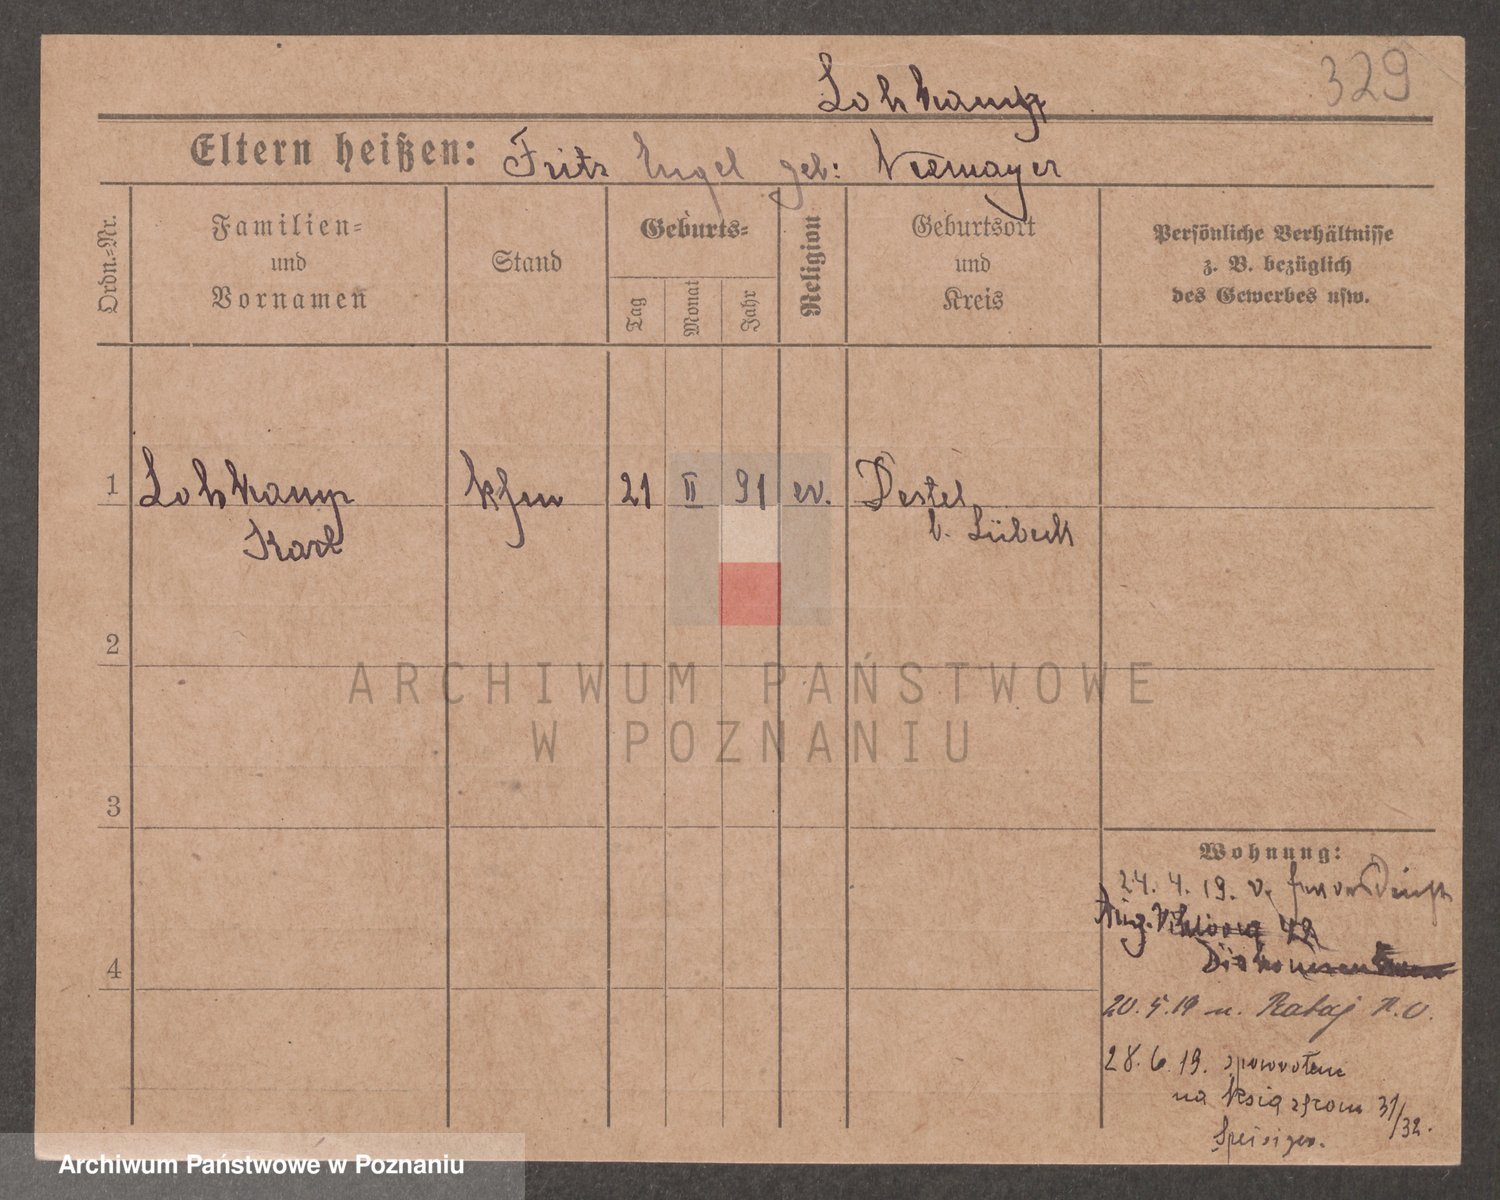 329
Lohkamp
Eltern heißen: Fritz Engel geb: Niemayer
Ordn.-Nr.
Familien-
und
Vornamen
Stand
Geburts-
Tag
Monat
Jahr
Religion
Geburtsort
und
Kreis
Persönliche Verhältnisse
z. B. bezüglich
des Gewerbes usw.
1 Lohkamp Kfm 21 II 91 ev. Destel
Karl b. Lübeck
2
3
4
Wohnung:
24. 4. 19. v.
42
Diakonissen
20. 5. 19 n. Rataj
28. 6. 19. spowrotem
na 31/32.
ARCHIWUM PAŃSTWOWE
W POZNANIU
Archiwum Państwowe w Poznaniu